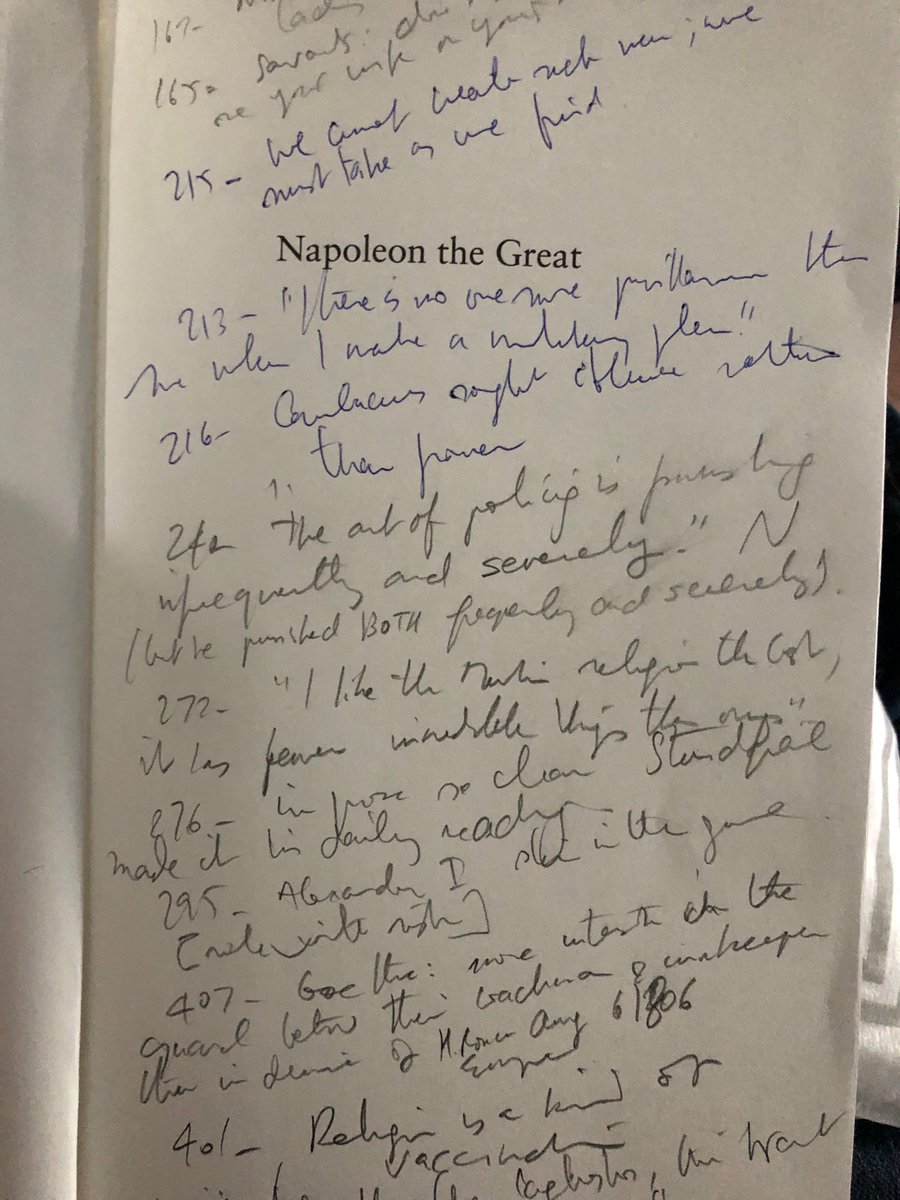 167-
165- savants:
your wife or your
215- we cannot create such men; we
must take as we find
Napoleon the Great
213- "There is no one more pusillanimous than
me when I make a military plan."
216- Cambaceres sought influence rather
than power
"the art of policing is punishing
infrequently and severely." N
(but he punished BOTH frequently and severely).
272- "I like the Muslim religion the best,
it has fewer incredible things than ours".
276- in prose so clear Stendhal
made it his daily reading
295- Alexander I in the
[
407- Goethe: more interested in the
quarrel between their coachman & innkeeper
than in demise of H. Roman Aug 6/1806
Empire
401- Religion is a kind of
vaccination
this